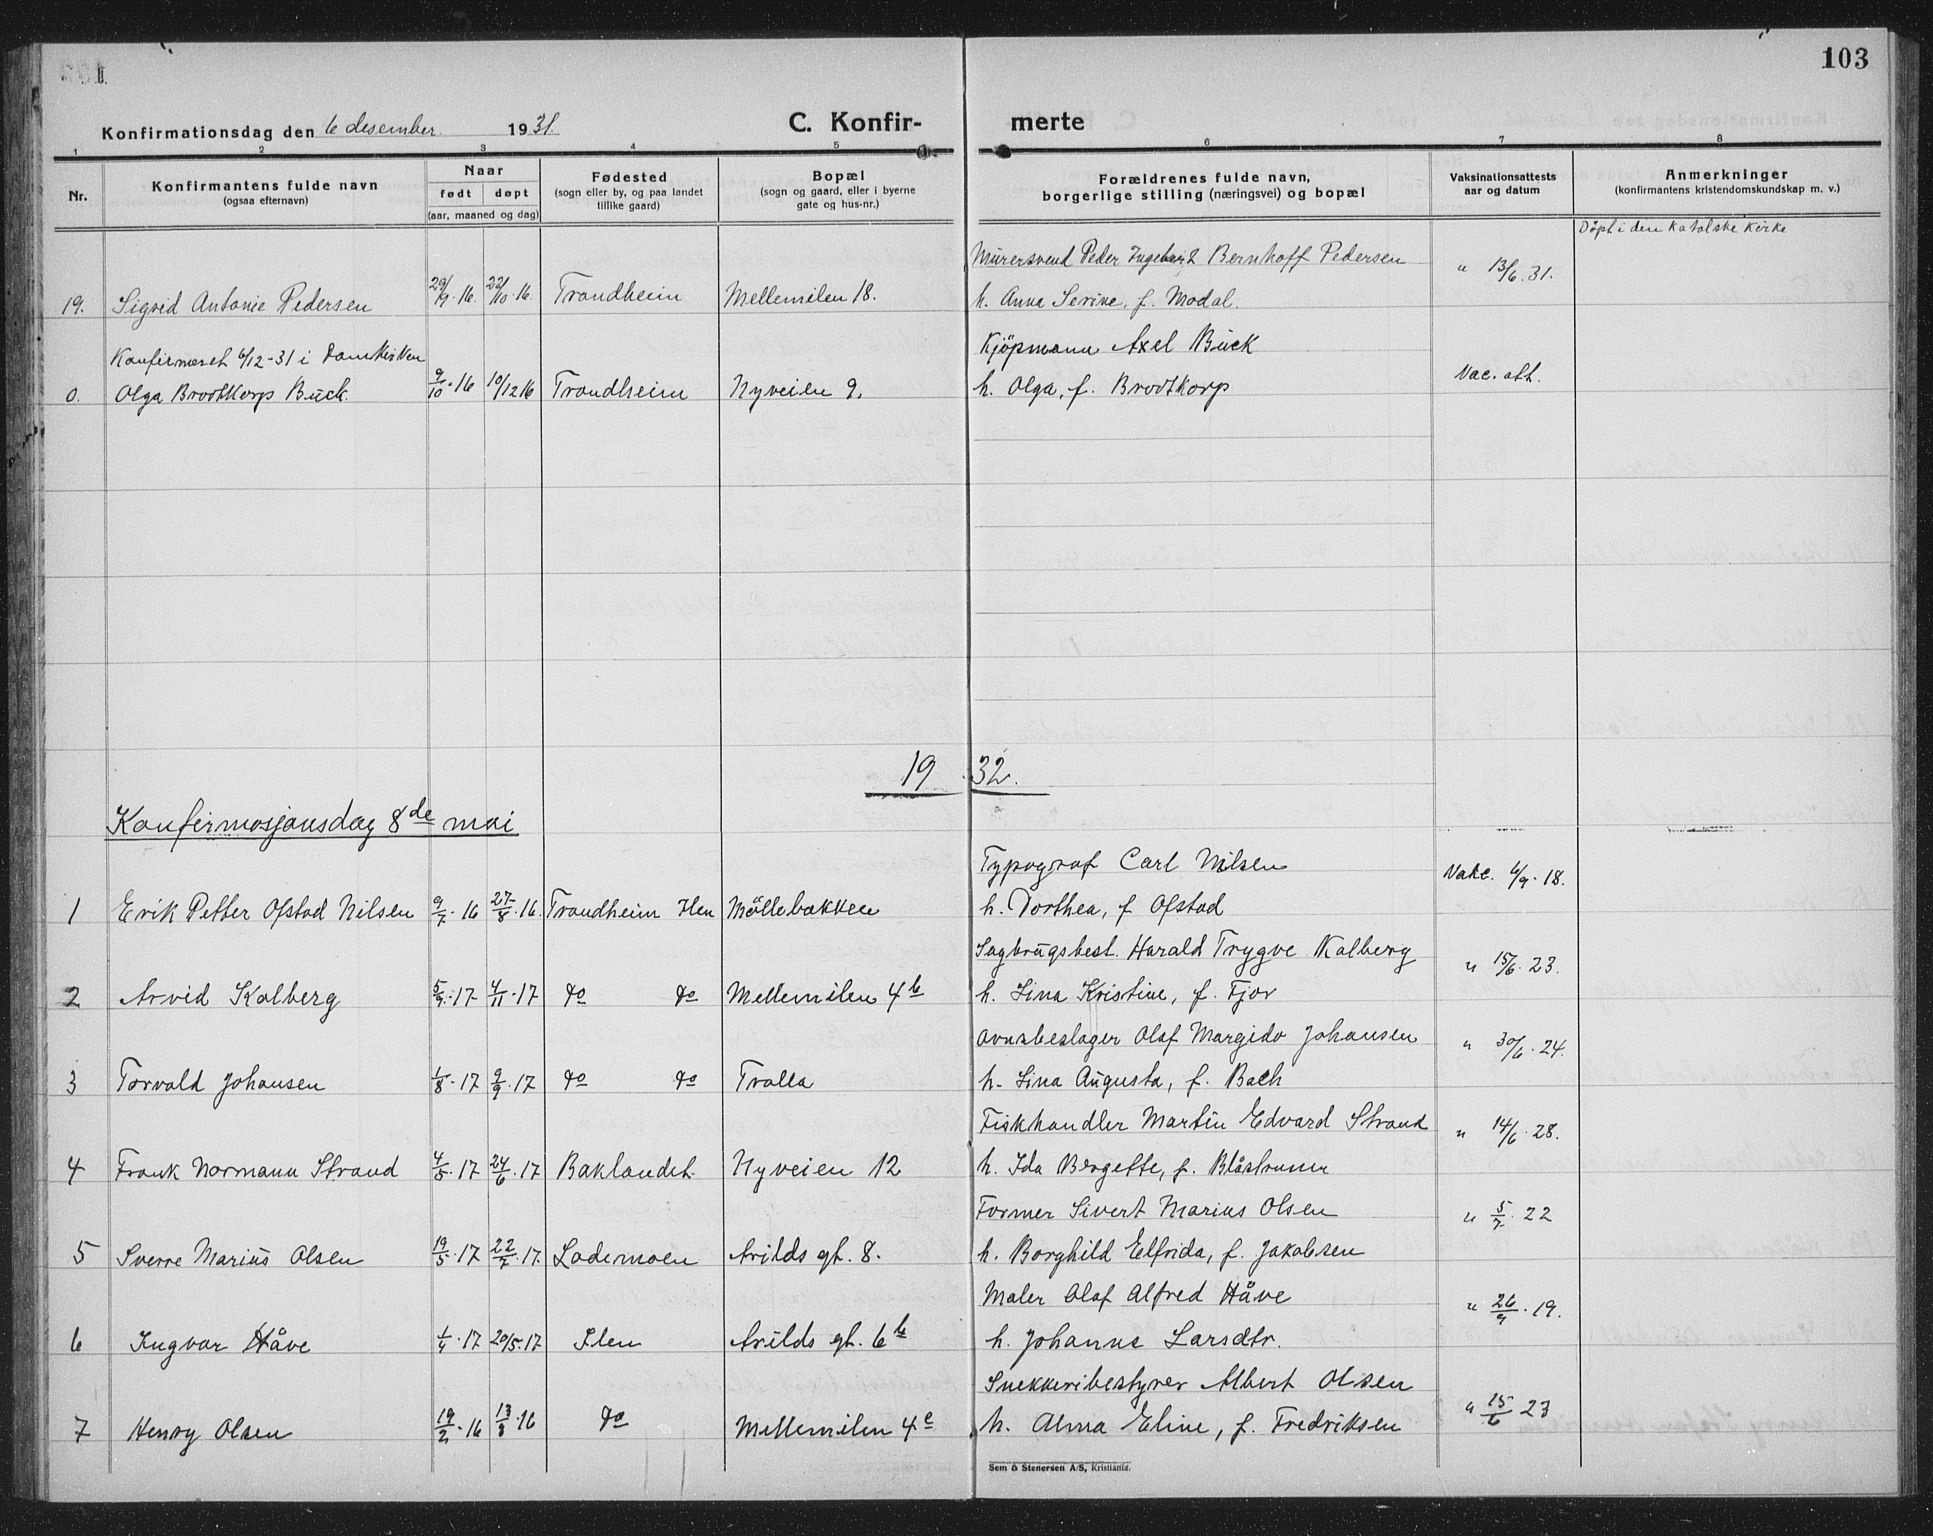 103
Konfirmationsdag den 6 desember 1931. C. Konfir- merte
1 2 3 4 5 6 7 8
Nr. Konfirmantens fulde navn (ogsaa efternavn) Naar født døpt (aar, maaned og dag) Fødested (sogn eller by, og paa landet tillike gaard) Bopæl (sogn og gaard, eller i byerne gate og hus-nr.) Forældrenes fulde navn, borgerlige stilling (næringsvei) og bopæl Vaksinationsattests aar og datum Anmerkninger (konfirmantens kristendomskundskap m. v.)
Döpt i den katolske kirke
Murersvend Peder Ingebert Bernhoff Pedersen " 13/6.31.
19. Sigrid Antonie Pedersen 29/9.16. 22/10.16. Trondheim Mellemilen 18. h. Anna Serine, f. Modal.
Konfirmeret 6/12-31 i Domkirken Kjöpmann Axel Buck
0. Olga Brodtkorp Buck 9/10.16 10/12 16 Trondheim Nyveien 9. h. Olga, f. Brodtkorp Vac. att.
19 32.
Konfirmasjonsdag 8de mai
Typograf Carl Nilsen Vakc. 6/9.18.
1 Erik Petter Ofstad Nilsen 9/7.16 27/8.16. Trondheim Ilen Möllebakken h. Dorthea, f Ofstad
Sagbrugsbest. Harald Trygve Kalberg " 15/6.23.
2 Arvid Kalberg 5/9.17 4/11.17 do do Mellemilen 4b h. Lina Kristine, f. Fjor
Ovnsbeslager Olaf Margido Johansen " 30/6.24.
3 Torvald Johansen 1/8.17 9/9.17 do do Trolla h. Lina Augusta, f. Bach
Fiskhandler Martin Edvard Strand " 14/6.28.
4 Frank Normann Strand 4/5.17 24/6.17 Baklandet Nyveien 12 h. Ida Bergette, f. Blåstrumer
Former Sivert Marius Olsen " 5/7.22
5 Sverre Marius Olsen 19/5.17 22/7.17. Lademoen Arilds gt. 8. h. Borghild Elfrida, f. Jakobsen
Maler Olaf Alfred Håve " 26/9.19.
6 Ingvar Håve 1/4.17 20/5.17 Ilen Arilds gt. 6b h. Johanne Larsdtr.
Snekkeribestyrer Albert Olsen " 15/6 23
7 Henry Olsen 19/2.16 13/8.16 do Mellemilen 4c h. Alma Eline, f. Fredriksen
Sem & Stenersen A/S, Kristiania.